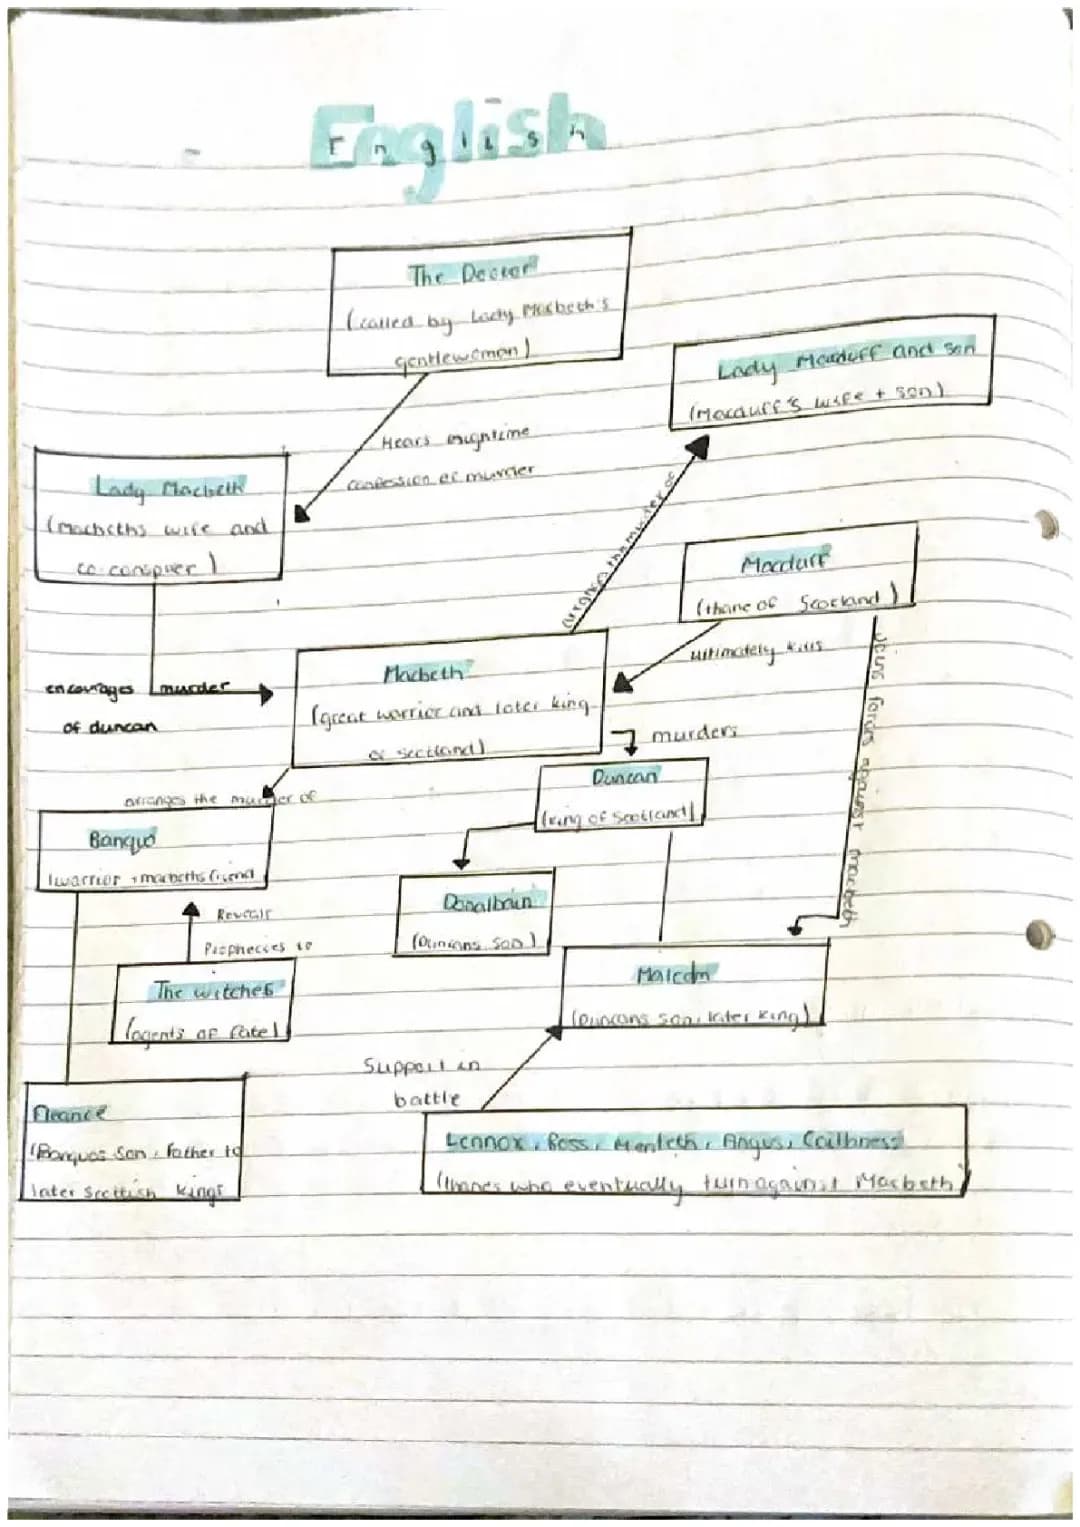 English
The Doctor
(called by Lady Macbeth's
gentlewoman)
Lady Macduff and son
(Macduff's wife + son)
Hears nightime
confession of murder
Lady Macbeth
(Macbeths wife and
co-conspirer)
arranges the murder of
Macduff
(thane of Scotland)
ultimately kills
joins forces against macbeth
Macbeth
(great warrior and later king
of scotland)
encourages murder
of duncan
murders
Duncan
(king of Scotland)
arranges the murder of
Banquo
(warrior + macbeths friend
Donalbain
(Duncans son)
Reveals
Prophecies to
The witches
(agents of fate)
Malcolm
(Duncans son, later king)
Support in
battle
Fleance
(Banquos son, father to
later Scottish kings
Lennox, Ross, Menteth, Angus, Caithness
(thanes who eventually turn against Macbeth)